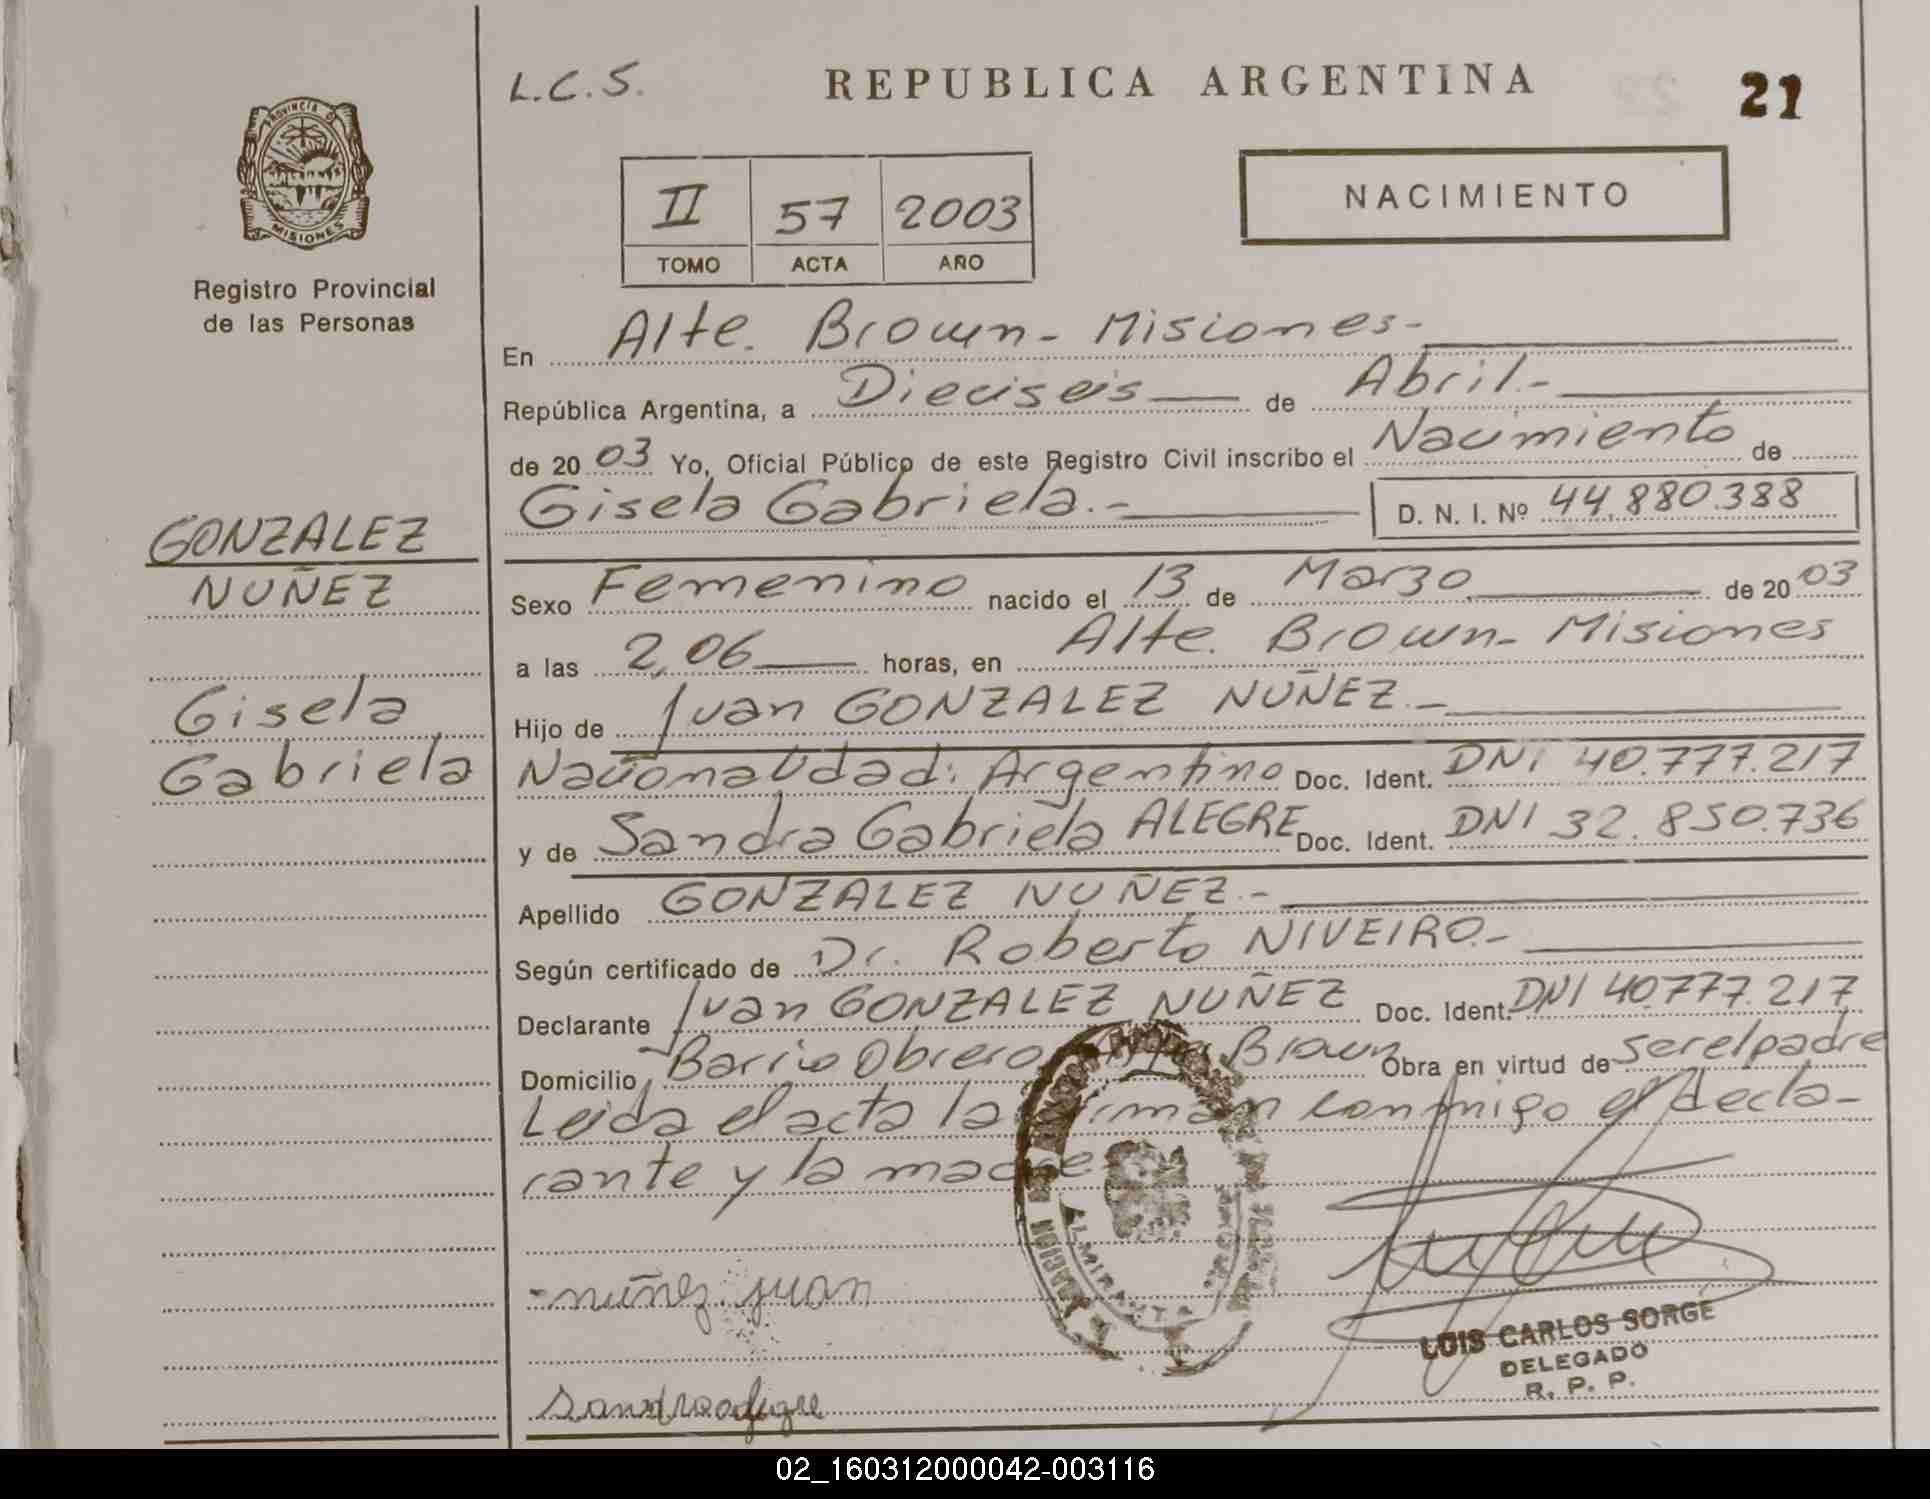 L.C.S.
REPUBLICA ARGENTINA
21
PROVINCIA D
MISIONES
Registro Provincial
de las Personas
II 57 2003
TOMO ACTA AÑO
NACIMIENTO
En Alte. Brown - Misiones -
República Argentina, a Dieciseis de Abril.-
de 20 03 Yo, Oficial Público de este Registro Civil inscribo el Nacimiento de
Gisela Gabriela.- D. N. I. Nº 44.880.388
GONZALEZ
NUÑEZ
Gisela
Gabriela
Sexo Femenino nacido el 13 de Marzo de 20 03
a las 2,06 horas, en Alte. Brown - Misiones
Hijo de Juan GONZALEZ NUÑEZ.-
Nacionalidad: Argentino Doc. Ident. DNI 40.777.217
y de Sandra Gabriela ALEGRE Doc. Ident. DNI 32.850.736
Apellido GONZALEZ NUÑEZ.-
Según certificado de Dr. Roberto NIVEIRO.-
Declarante Juan GONZALEZ NUÑEZ Doc. Ident. DNI 40.777.217
Domicilio Barrio Obrero Brown Obra en virtud de ser el padre
Leida el acta la firman conmigo el decla-
rante y la madre
nuñez juan
LUIS CARLOS SORGE
DELEGADO
R. P. P.
02_160312000042-003116